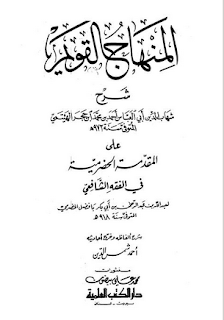 المنهاج القويم
شرح
شهاب الدين أبي العباس أحمد بن محمد ابن حجر الهيتمي
المتوفى سنة ٩٧٣هـ
على
المقدمة الحضرمية
في الفقه الشافعي
لعبد الله بن عبد الرحمن بن أبي بكر بافضل الحضرمي
المتوفى سنة ٩١٨هـ
شرح ألفاظه وخرج أحاديثه
أحمد شمس الدين
منشورات
محمد علي بيضون
دار الكتب العلمية